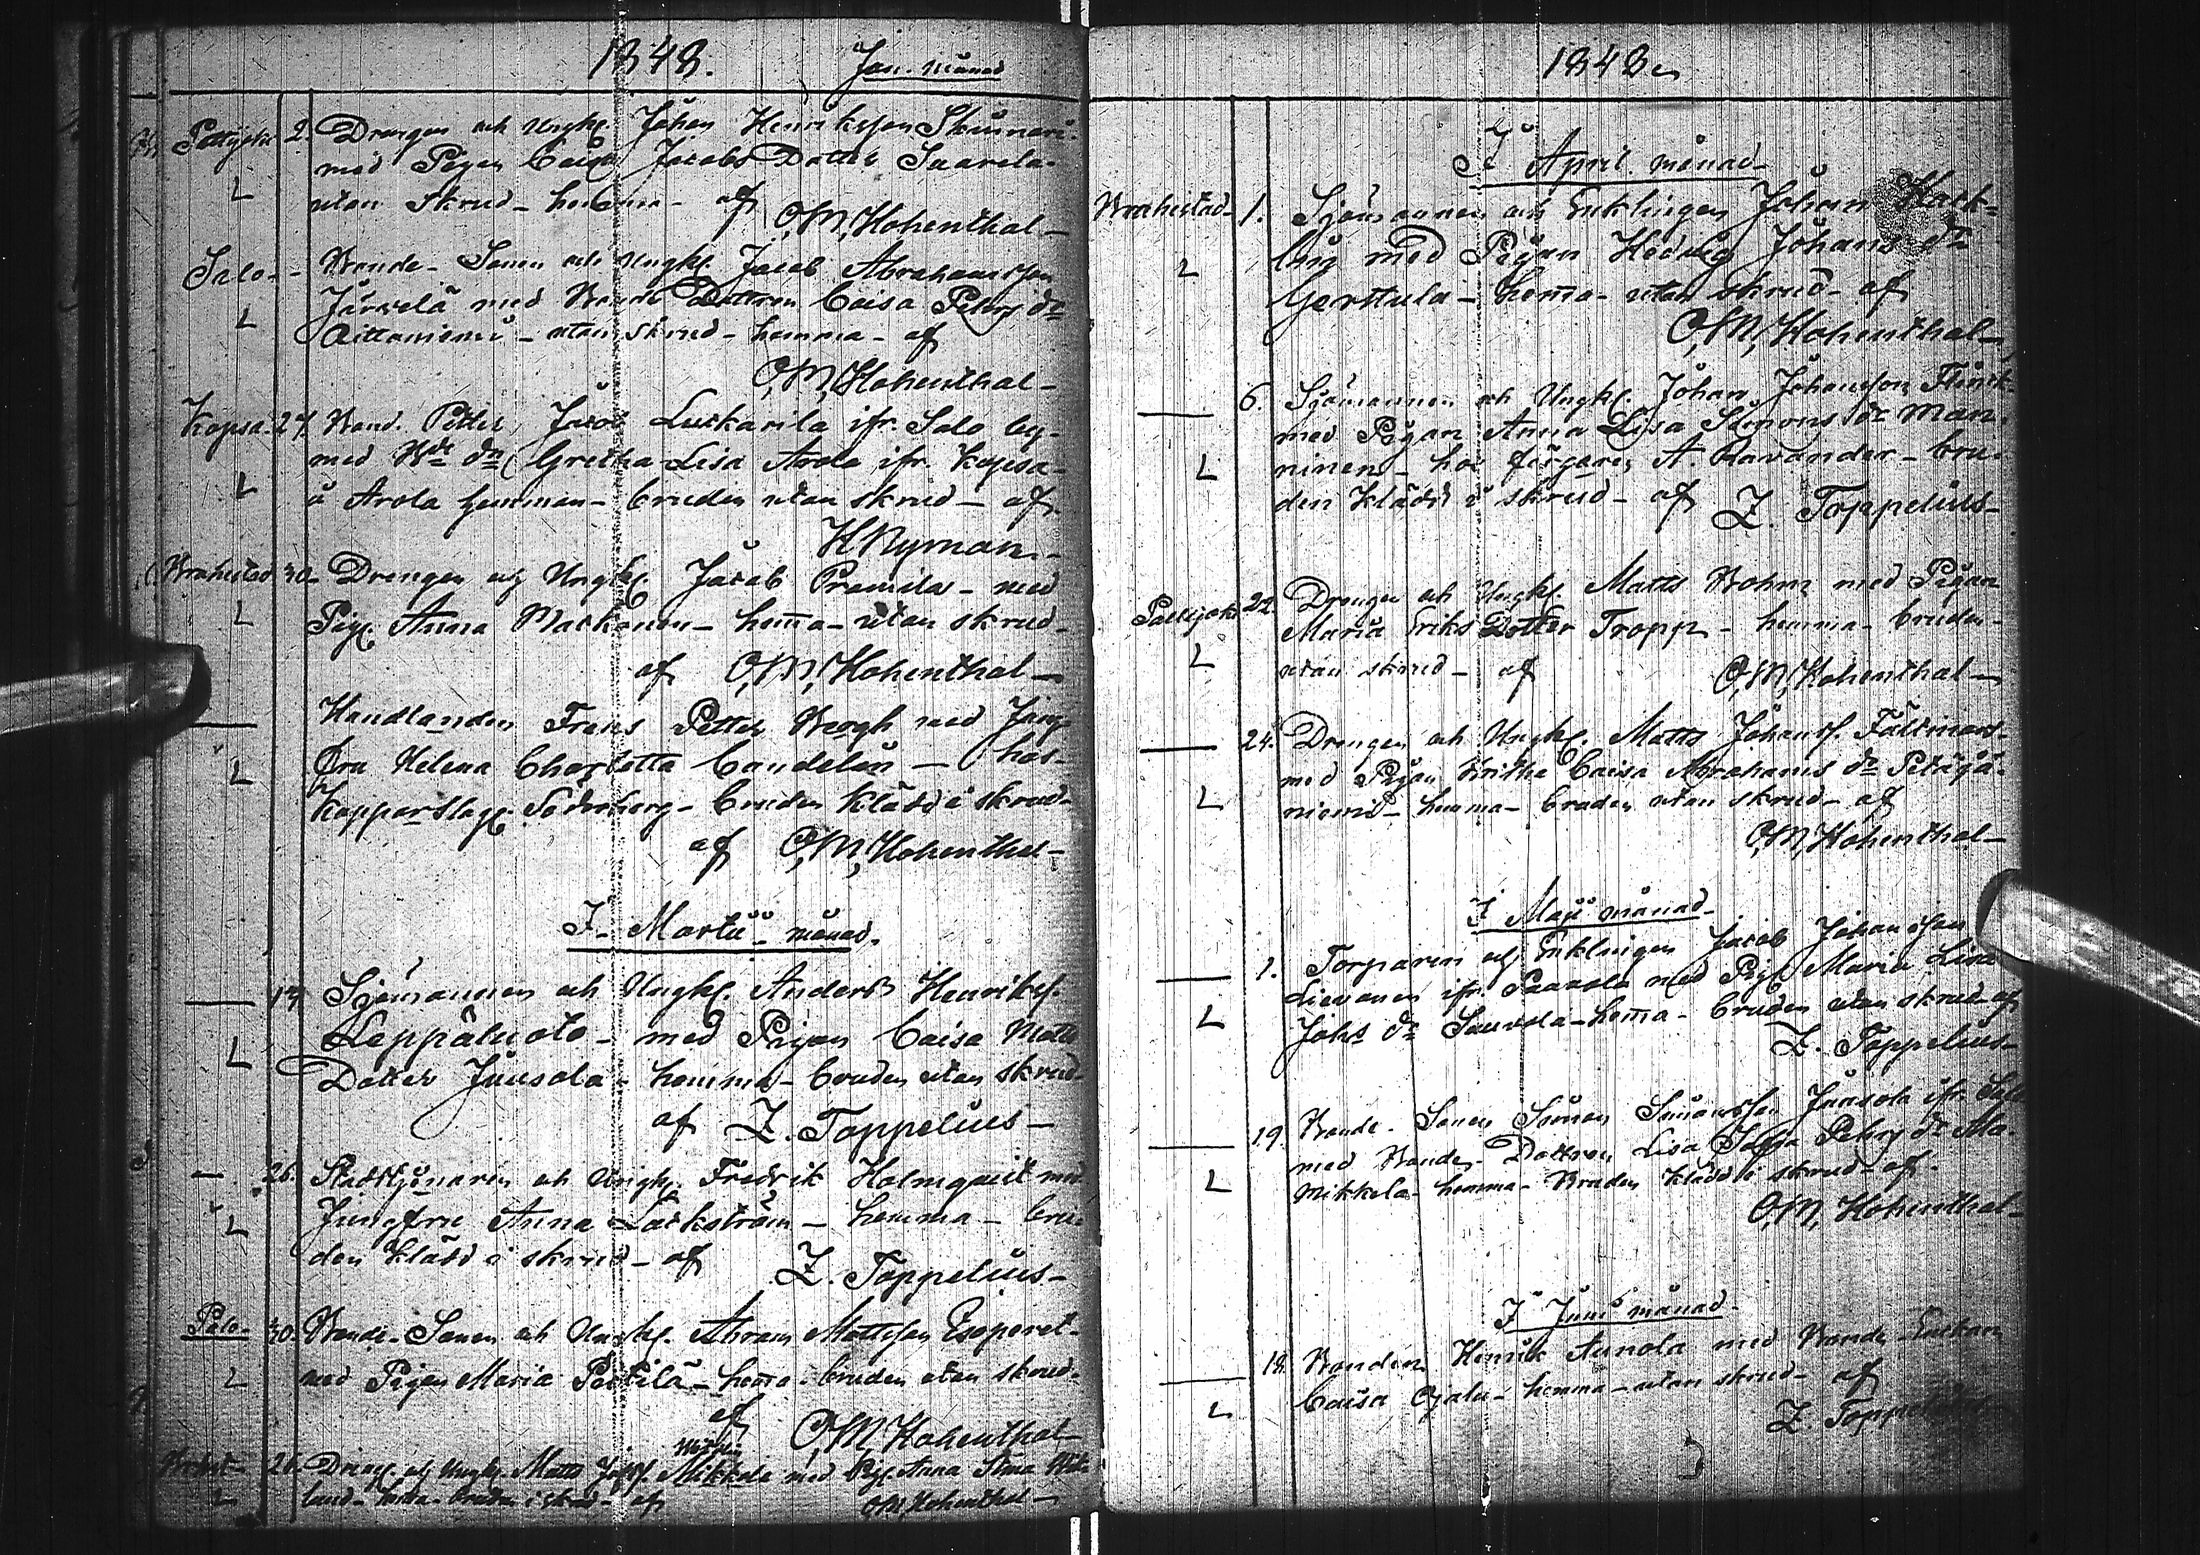 1848. Jan. månad
Pattijoki 2. Drengen och Ungk. Johan Henriksson
med Pigan Caisa Jacobs Dotter Saarela
utan skrud - hemma - af
O,M,Hohenthal
Salo - Bonde-Sonen och Ungk. Jacob Abrahamsson
Järvelä med Bonde Dottren Caisa Pehrs dr
Aittoniemi - utan skrud - hemma - af
O,M,Hohenthal
Kopsa 27. Bond. Petter Jacob Luckarila ifr. Salo by
med Bde dn Gretha Lisa Arola ifr. Kopsa
å Arola hemman - bruden utan skrud - af
H Nyman
Brahestad 30. Drengen och Ungk. Jacob med
Pig. Anna - hema - utan skrud
af O,M,Hohenthal
Handlanden Frans Petter Bergh med Jung
fru Helena Charlotta Candelin - hos
Kopparslag. Söderberg - bruden klädd i skrud
af O,M,Hohenthal
I Martii månad.
Sjömannen och Ungk. Anders Henrikss.
Leppäluoto - med Pigan Caisa Matts
Dotter Juusola - hemma - bruden utan skrud
af Z. Toppelius
26. Stadstjenaren och Ungk. Fredrik Holmquist med
Jungfru Anna Lackström - hemma - bru
den klädd i skrud - af Z. Toppelius
Salo 30. Bonde-Sonen och Ungk. Abram Mattsson
med Pigan Maria - hema - bruden utan skrud
af O,M,Hohenthal
Brahest. Dreng. och Ungk. Matts Mikkola med Pig. Anna Stina
land - hema - bruden i skrud - af O,M,Hohenthal
1848
I April månad
Brahestad 1. Sjömannen och Enklingen Johan
med Pigan Hedvig Johans dr
Gerttula - hema - utan skrud - af
O,M,Hohenthal
6. Sjömannen och Ungk. Johan Johansson Flinck
med Pigan Anna Lisa Simons dr Man
ninen - hos färgaren A. Ravander - bru
den klädd i skrud - af Z. Toppelius
Pattijoki 22. Drengen och Ungk. Matts Bohm med Pigan
Maria Eriks Dotter Tropp - hemma - bruden
utan skrud - af O,M,Hohenthal
24. Drengen och Ungk. Matts Johanss. Fältmars
med Pigan Britha Caisa Abrahams dr Petäjä
niemi - hemma - bruden utan skrud - af
O,M,Hohenthal
I Maji månad
1. Torparen och Enklingen Jacob Johansson
Lievonen ifr. Paavola med Pig. Maria Lisa
Johs dr - hema - bruden utan skrud af
Z. Toppelius
19. Bonde-Sonen Simon Simonsson Juusola ifr. Salo
med Bonde-Dottren Lisa Pehrs dr Ma
Mikkola - hemma - Bruden klädd i skrud - af
O,M,Hohenthal
I Juni månad
18. Bonden Henrik Annola med Bonde-Enkan
Caisa Ojala - hemma - utan skrud - af
Z. Toppelius